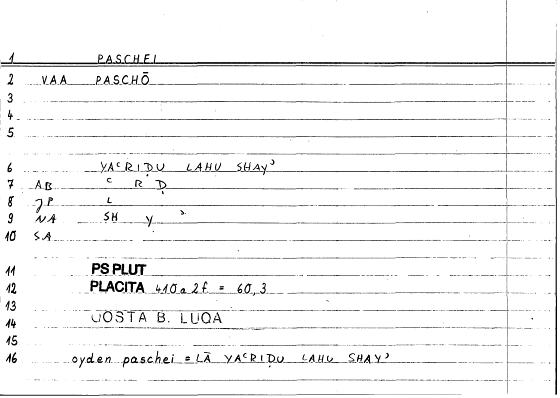 1 PASCHEI
2 VAA PASCHŌ
3
4
5
6 YAᶜRIḌU LAHU SHAYʾ
7 AB ᶜ R Ḍ
8 JP L
9 NA SH Y ʾ
10 SA
11 PS PLUT
12 PLACITA 410a2f = 60,3
13
14 QOSTA B. LUQA
15
16 oyden paschei = LĀ YAᶜRIḌU LAHU SHAYʾ